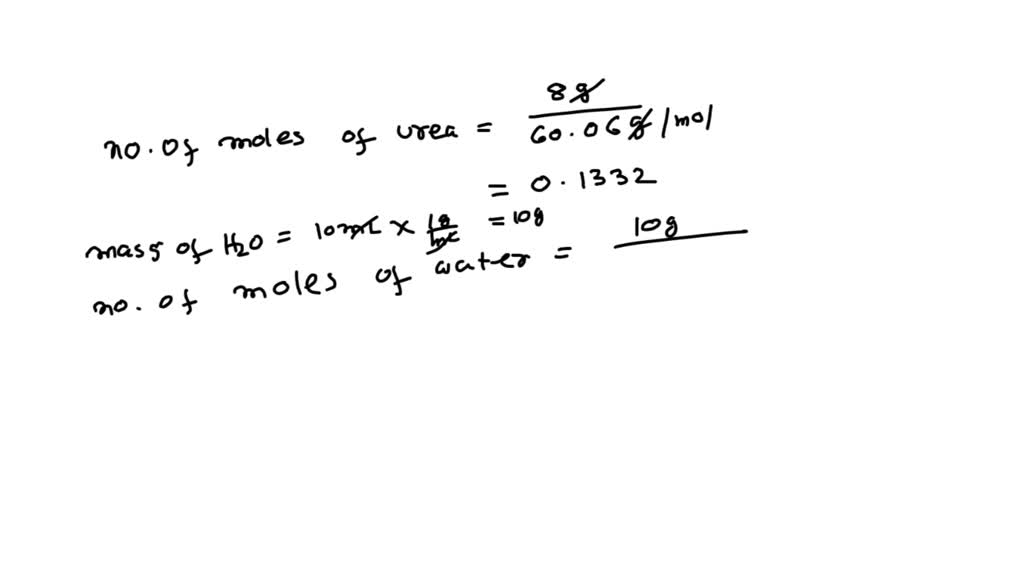 no. of moles of urea = 8g / 60.06g/mol
= 0.1332
mass of H2O = 10mL × 1g/mL = 10g
no. of moles of water = 10g